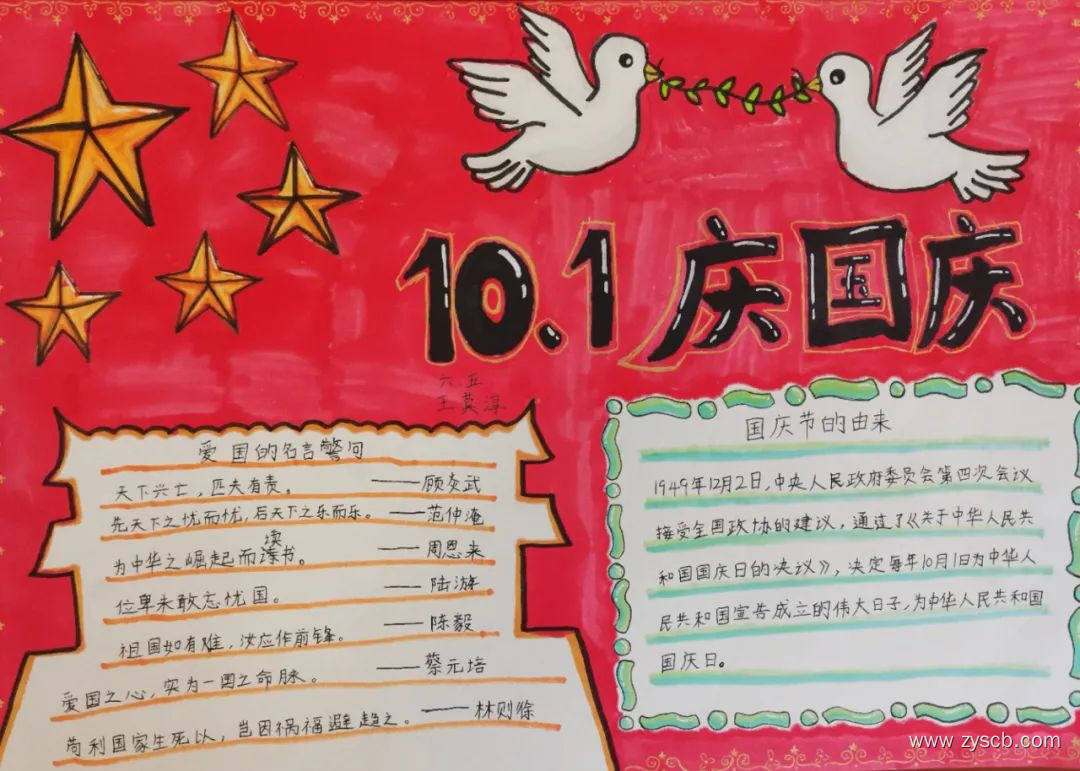 10.1庆国庆
六.五
王莫淳
爱国的名言警句
天下兴亡，匹夫有责。——顾炎武
先天下之忧而忧，后天下之乐而乐。——范仲淹
读
为中华之崛起而读书。——周恩来
位卑未敢忘忧国。——陆游
祖国如有难，汝应作前锋。——陈毅
爱国之心，实为一国之命脉。——蔡元培
苟利国家生死以，岂因祸福避趋之。——林则徐
国庆节的由来
1949年12月2日，中央人民政府委员会第四次会议
接受全国政协的建议，通过了《关于中华人民共
和国国庆日的决议》，决定每年10月1日为中华人
民共和国宣告成立的伟大日子，为中华人民共和国
国庆日。
www.zyscb.com